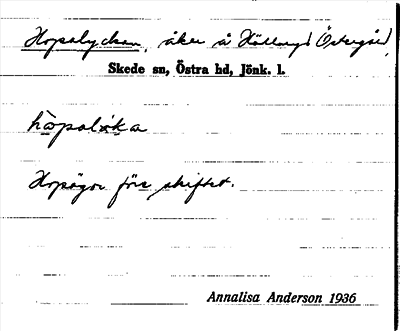 Hopalyckan, åker å Hållaryd Östergård,
Skede sn, Östra hd, Jönk. l.
hòpalỳka
Hopägor före skiftet.
Annalisa Anderson 1936